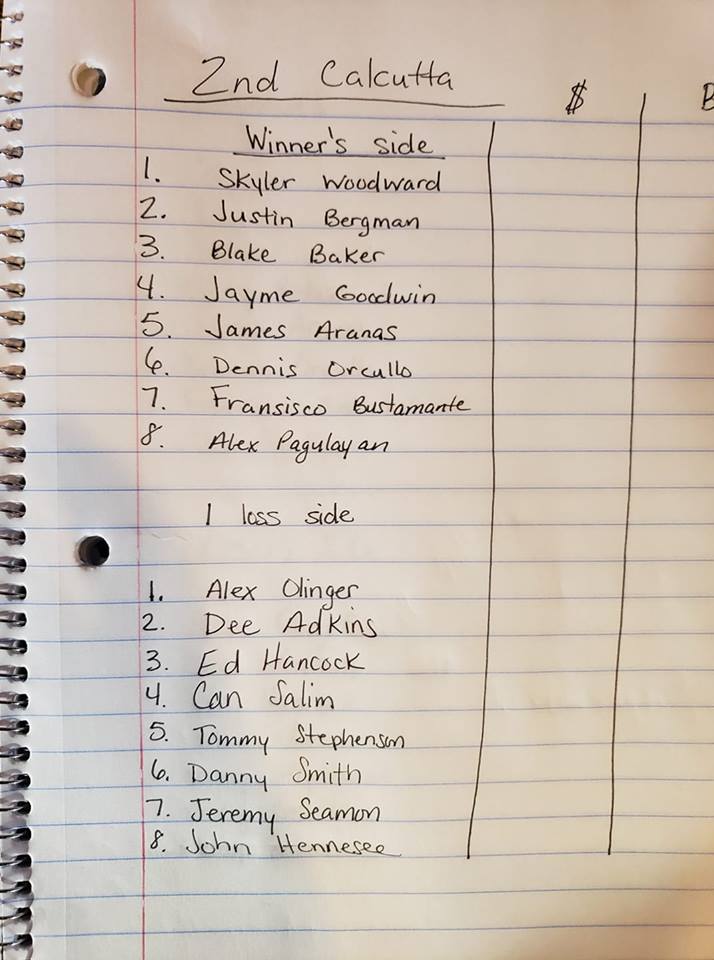 2nd Calcutta
$
B
Winner's side
1. Skyler Woodward
2. Justin Bergman
3. Blake Baker
4. Jayme Goodwin
5. James Aranas
6. Dennis Orcullo
7. Fransisco Bustamante
8. Alex Pagulayan
1 loss side
1. Alex Olinger
2. Dee Adkins
3. Ed Hancock
4. Can Salim
5. Tommy Stephenson
6. Danny Smith
7. Jeremy Seamon
8. John Hennesee